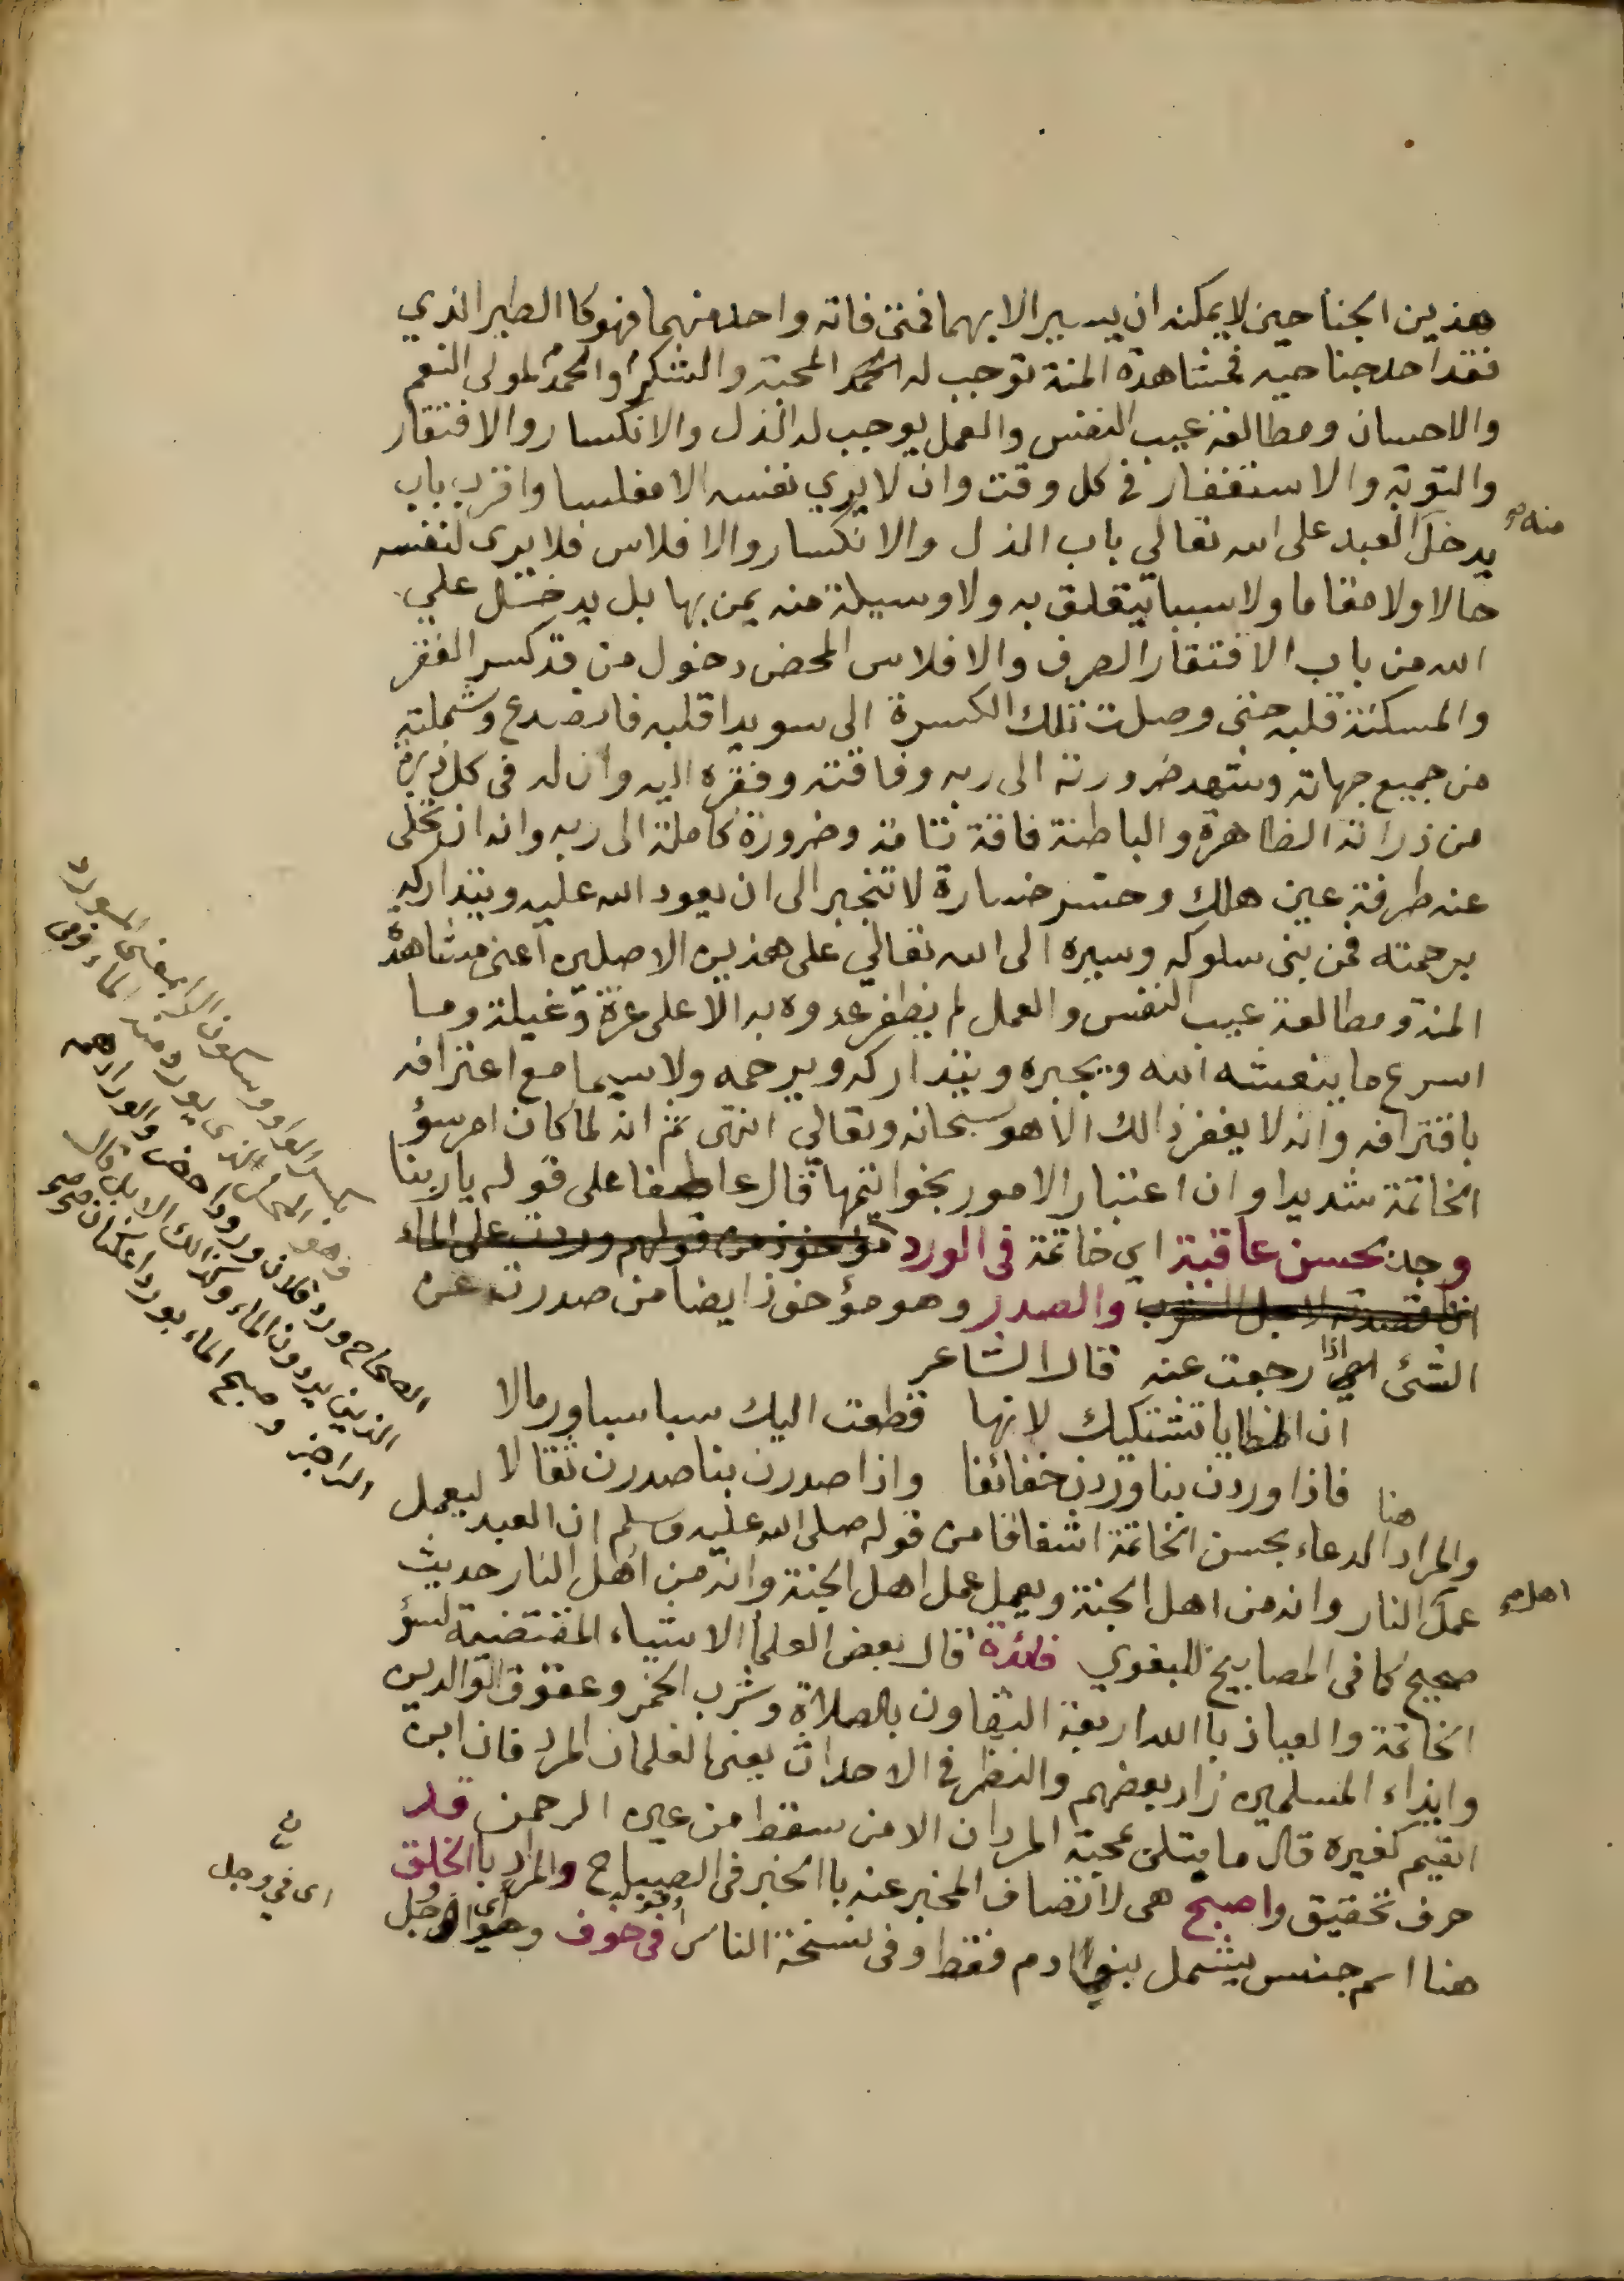 هذين الجناحين لا يمكنه ان يسير الا بهما فمتى فاته واحد منهما فهو كا الطير الذي
فقد احد جناحيه فمشاهدة المنة توجب له المحبة والشكر والحمد لمولى النعم
والاحسان ومطالعة عيب النفس والعمل يوجب له الذل والانكسار والافتقار
والتوبة والاستغفار في كل وقت وان لا يري نفسه الا مفلسا واقرب باب
منه صح
يدخل العبد على الله تعالي باب الذل والانكسار والافلاس فلا يرى لنفسه
حالا ولا مقاما ولا سببا يتعلق به ولا وسيلة منه يمن بها بل يدخل علي
الله من باب الافتقار الصرف والافلاس المحض دخول من قد كسر الفقر
والمسكنة قلبه حتى وصلت تلك الكسرة الى سويدا قلبه فانصدع وشملته
من جميع جهاته وشهد ضرورته الى ربه وفاقته وفقره اليه وان له في كل ذرة
من ذراته الظاهرة والباطنة فاقة تامة وضرورة كاملة الى ربه وانه ان تخلى
عنه طرفة عين هلك وخسر خسارة لا تنجبر الى ان يعود الله عليه ويتداركه
برحمته فمن بنى سلوكه وسيره الى الله تعالي على هذين الاصلين اعنى مشاهدة
المنة ومطالعة عيب النفس والعمل لم يظفر عدوه به الا على غرة وغيلة وما
اسرع ما ينعشه الله ويجبره ويتداركه ويرحمه ولا سيما مع اعترافه
باقترافه وانه لا يغفر ذالك الا هو سبحانه وتعالي انتهى ثم انه لما كان امر سؤ
الخاتمة شديدا وان اعتبار الامور بخواتمها قال عاطفا على قوله يا ربنا
وجد بحسن عاقبة اي خاتمة في الورد مؤخوذ من قولهم وردت على الماء
اذا قصدته لاجل الشرب والصدر وهو مؤخوذ ايضا من صدرت عن
الشئ اذا رجعت عنه قال الشاعر
ان المطايا تشتكيك لانها قطعت اليك سباسبا ورمالا
فاذا وردن بنا وردن خفائفا واذا صدرن بنا صدرن ثقالا
والمراد هنا الدعاء بحسن الخاتمة اشفاقا من قوله صلى الله عليه وسلم ان العبد ليعمل
عمل النار وانه من اهل الجنة ويعمل عمل اهل الجنة وانه من اهل النار حديث
اهل صح
صحيح كما في المصابيح للبغوي فائدة قال بعض العلما الاشياء المقتضية لسؤ
الخاتمة والعياذ باالله اربعة التهاون بالصلاة وشرب الخمر وعقوق الوالدين
وايذاء المسلمين زاد بعضهم والنظر في الاحداث يعنى الغلمان المرد فان ابن
القيم كغيره قال ما يبتلى بمحبة المردان الا من سقط من عين الرحمن قد
حرف تحقيق واصبح هى لاتصاف المخبر عنه باالخبر في الصباح والمراد باالخلق
هنا اسم جنس يشمل بنوا ادم فقط وفى نسخة الناس في خوف
بكسر الواو وسكون الراء بمعنى المورد
وهو المحل الذي يورد منه الماء وفى
الصحاح ورد فلان ورودا حضر والورد هم
الذين يردون الماء وكذالك الابل قال
الراجز وصبح الماء بورد
اى في وجل